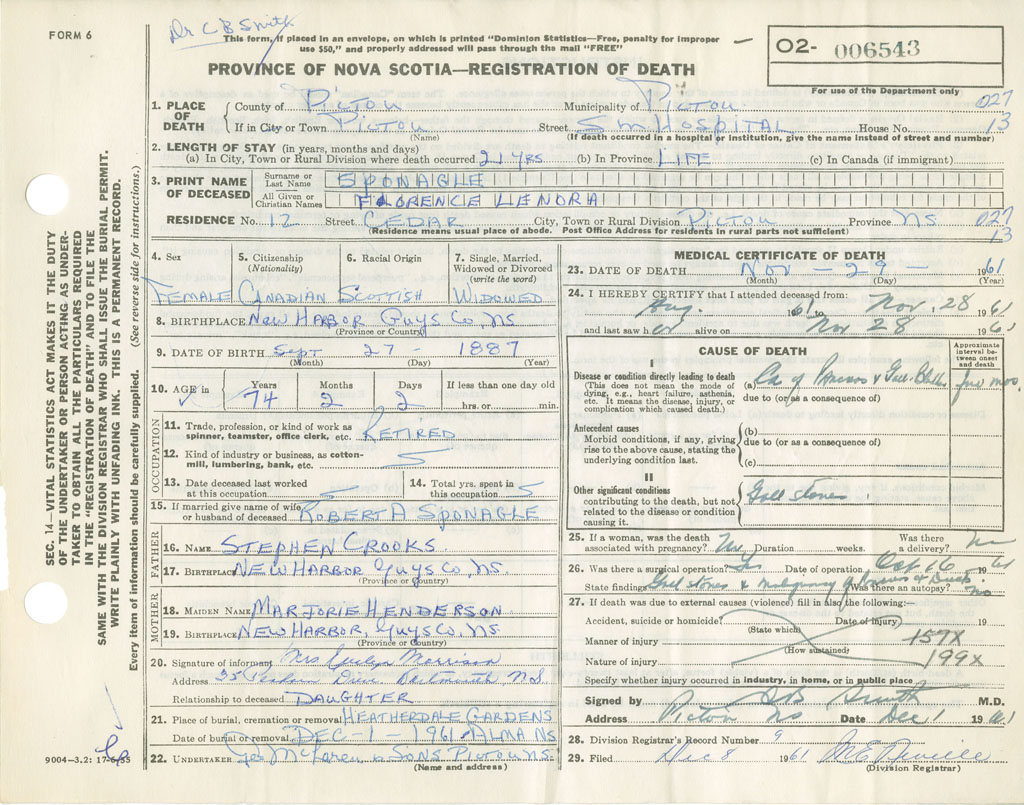 FORM 6
Dr C B Smith
This form, if placed in an envelope, on which is printed "Dominion Statistics—Free, penalty for improper
use $50," and properly addressed will pass through the mail "FREE"
O2- 006543
For use of the Department only
PROVINCE OF NOVA SCOTIA—REGISTRATION OF DEATH
1. PLACE OF DEATH
County of PICTOU Municipality of PICTOU 027
If in City or Town PICTOU (Name) Street SM HOSPITAL House No. 13
(If death occurred in a hospital or institution, give the name instead of street and number)
2. LENGTH OF STAY (in years, months and days)
(a) In City, Town or Rural Division where death occurred 21 YRS (b) In Province LIFE (c) In Canada (if immigrant)
3. PRINT NAME OF DECEASED
Surname or Last Name SPONAGLE
All Given or Christian Names FLORENCE LENORA
RESIDENCE No. 12 Street CEDAR City, Town or Rural Division PICTOU Province NS 027
13
(Residence means usual place of abode. Post Office Address for residents in rural parts not sufficient)
4. Sex FEMALE
5. Citizenship (Nationality) CANADIAN
6. Racial Origin SCOTTISH
7. Single, Married, Widowed or Divorced (write the word) WIDOWED
8. BIRTHPLACE NEW HARBOR GUYS CO, NS
(Province or Country)
9. DATE OF BIRTH SEPT 27 - 1887
(Month) (Day) (Year)
10. AGE in Years 74 Months 2 Days 2 If less than one day old hrs. or min.
OCCUPATION
11. Trade, profession, or kind of work as spinner, teamster, office clerk, etc. RETIRED
12. Kind of industry or business, as cotton-mill, lumbering, bank, etc.
13. Date deceased last worked at this occupation
14. Total yrs. spent in this occupation
15. If married give name of wife or husband of deceased ROBERT A SPONAGLE
FATHER
16. NAME STEPHEN CROOKS
17. BIRTHPLACE NEW HARBOR GUYS CO, NS.
(Province or Country)
MOTHER
18. MAIDEN NAME MARJORIE HENDERSON
19. BIRTHPLACE NEW HARBOR, GUYS CO, NS
(Province or Country)
20. Signature of informant Mrs Evelyn Morrison
Address 35 Drive Dartmouth N.S.
Relationship to deceased DAUGHTER
21. Place of burial, cremation or removal HEATHERDALE GARDENS
Date of burial or removal DEC-1-1961 ALMA NS
22. UNDERTAKER Geo McLaren & SONS PICTOU NS
(Name and address)
MEDICAL CERTIFICATE OF DEATH
23. DATE OF DEATH Nov - 29 - 1961
(Month) (Day) (Year)
24. I HEREBY CERTIFY that I attended deceased from:
Aug. 1961 to Nov. 28 1961
and last saw her alive on Nov 28 1961
CAUSE OF DEATH
Approximate interval between onset and death
I
Disease or condition directly leading to death
(This does not mean the mode of dying, e.g., heart failure, asthenia, etc. It means the disease, injury, or complication which caused death.)
(a) Ca of Pancreas & Gall Bladder few mos
due to (or as a consequence of)
Antecedent causes
Morbid conditions, if any, giving rise to the above cause, stating the underlying condition last.
(b)
due to (or as a consequence of)
(c)
II
Other significant conditions
contributing to the death, but not related to the disease or condition causing it.
Gall stones.
25. If a woman, was the death associated with pregnancy? No. Duration weeks. Was there a delivery? No
26. Was there a surgical operation? Yes Date of operation Oct 16 1961
State findings Gall stones & malignancy of Was there an autopsy? No
27. If death was due to external causes (violence) fill in also the following:—
Accident, suicide or homicide? (State which) Date of injury)
Manner of injury (How sustained) 157X
Nature of injury 199X
Specify whether injury occurred in industry, in home, or in public place
Signed by C B Smith M.D.
Address Pictou NS Date Dec 1 1961
28. Division Registrar's Record Number 9
29. Filed Dec 8 1961
(Division Registrar)
SEC. 14—VITAL STATISTICS ACT MAKES IT THE DUTY
OF THE UNDERTAKER OR PERSON ACTING AS UNDER-
TAKER TO OBTAIN ALL THE PARTICULARS REQUIRED
IN THE "REGISTRATION OF DEATH" AND TO FILE THE
SAME WITH THE DIVISION REGISTRAR WHO SHALL ISSUE THE BURIAL PERMIT.
WRITE PLAINLY WITH UNFADING INK. THIS IS A PERMANENT RECORD.
Every item of information should be carefully supplied. (See reverse side for instructions.)
9004-3.2: 17-6-55